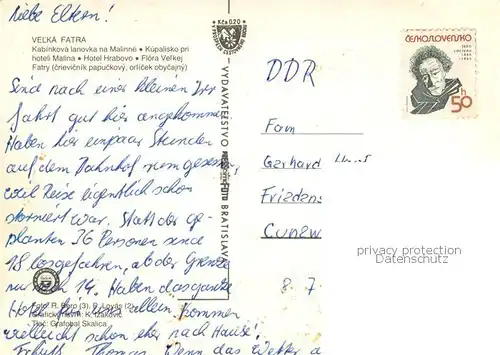 Liebe Eltern!
VEĽKÁ FATRA
Kabínková lanovka na Malinné • Kúpalisko pri
hoteli Malina • Hotel Hrabovo • Flóra Veľkej
Fatry (črievičník papučkový, orlíček obyčajný)
Sind nach einer kleinen Irr
fahrt gut hier angekommen
Haben hier ein paar Stunden
auf dem Bahnhof
weil Reise eigentlich schon
storniert war. Statt der ge-
planten 36 Personen sind
18 losgefahren, ab der Grenze
nur noch 14. Haben das ganze
Hotel für uns allein. Kommen
vielleicht schon eher nach Hause!
Thomas. Wenn das Wetter
Foto: R.
Tlač: Grafobal Skalica
Kčs 0,20
VYDAVATEĽSTVO
BRATISLAVA
ČESKOSLOVENSKO
50 h
DDR
Fam
Gerhard
Friedens
Cunew
8 7
privacy protection
Datenschutz